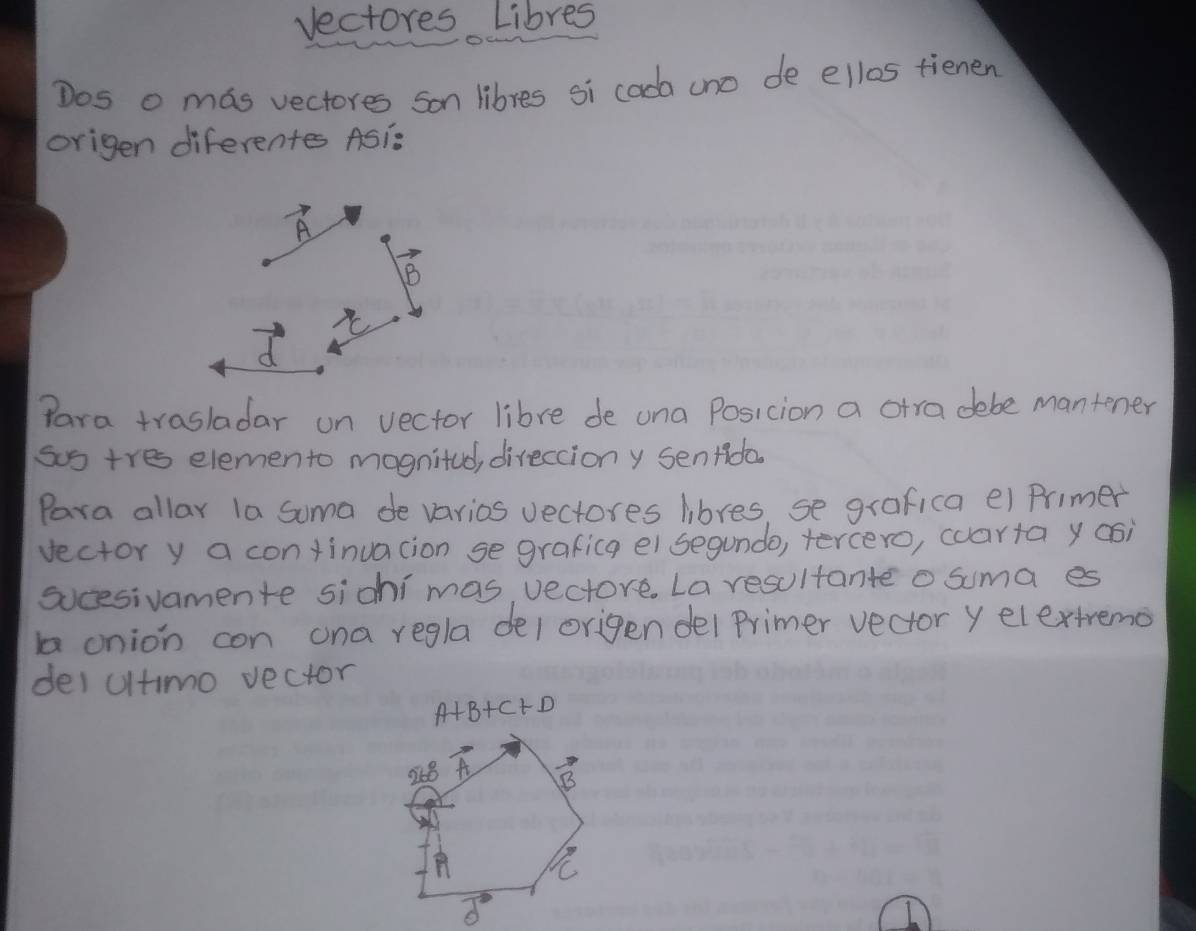 Vectores Libres
Dos o más vectores son libres si cada uno de ellos tienen
origen diferentes Así:
A
B
C
d
Para trasladar un vector libre de una Posicion a otra debe mantener
sus tres elemento magnitud, direccion y sentido.
Para allar la suma de varios vectores libres se grafica el Primer
vector y a continuacion se grafica el segundo, tercero, cuarta y asi
sucesivamente si ahí mas vectore. La resultante o suma es
la unión con una regla del origen del Primer vector y el extremo
del ultimo vector
A+B+C+D
268 A
B
R
C
d
1